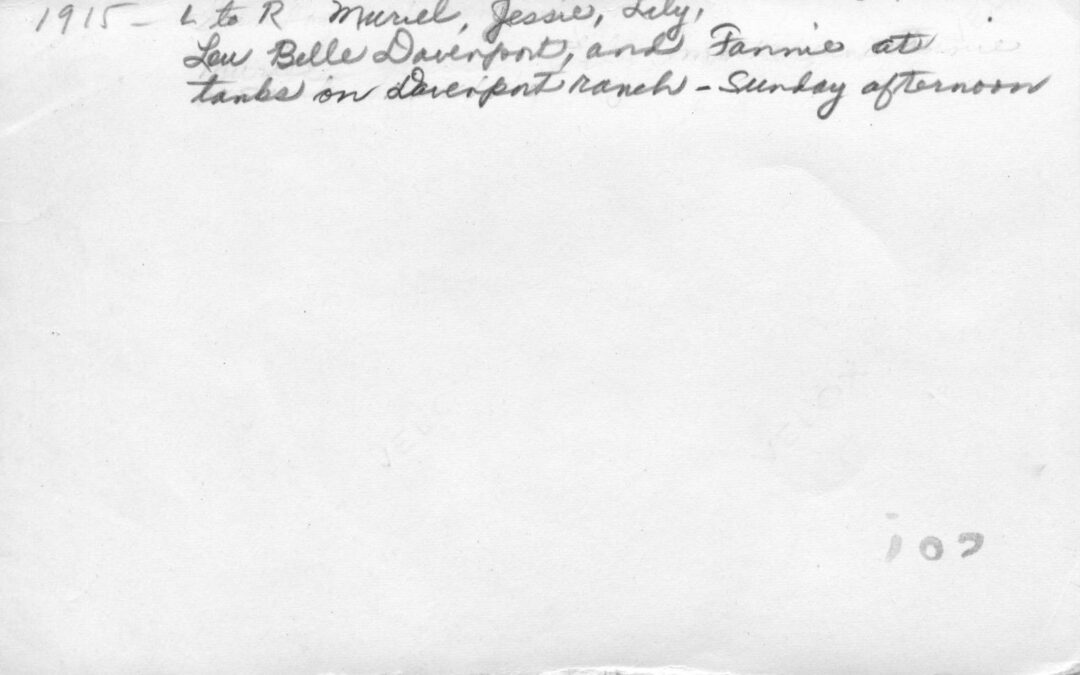 1915 - L to R Muriel, Jessie, Lily,
Lou Belle Davenport, and Fannie at
tanks on Davenport ranch - Sunday afternoon
VELOX